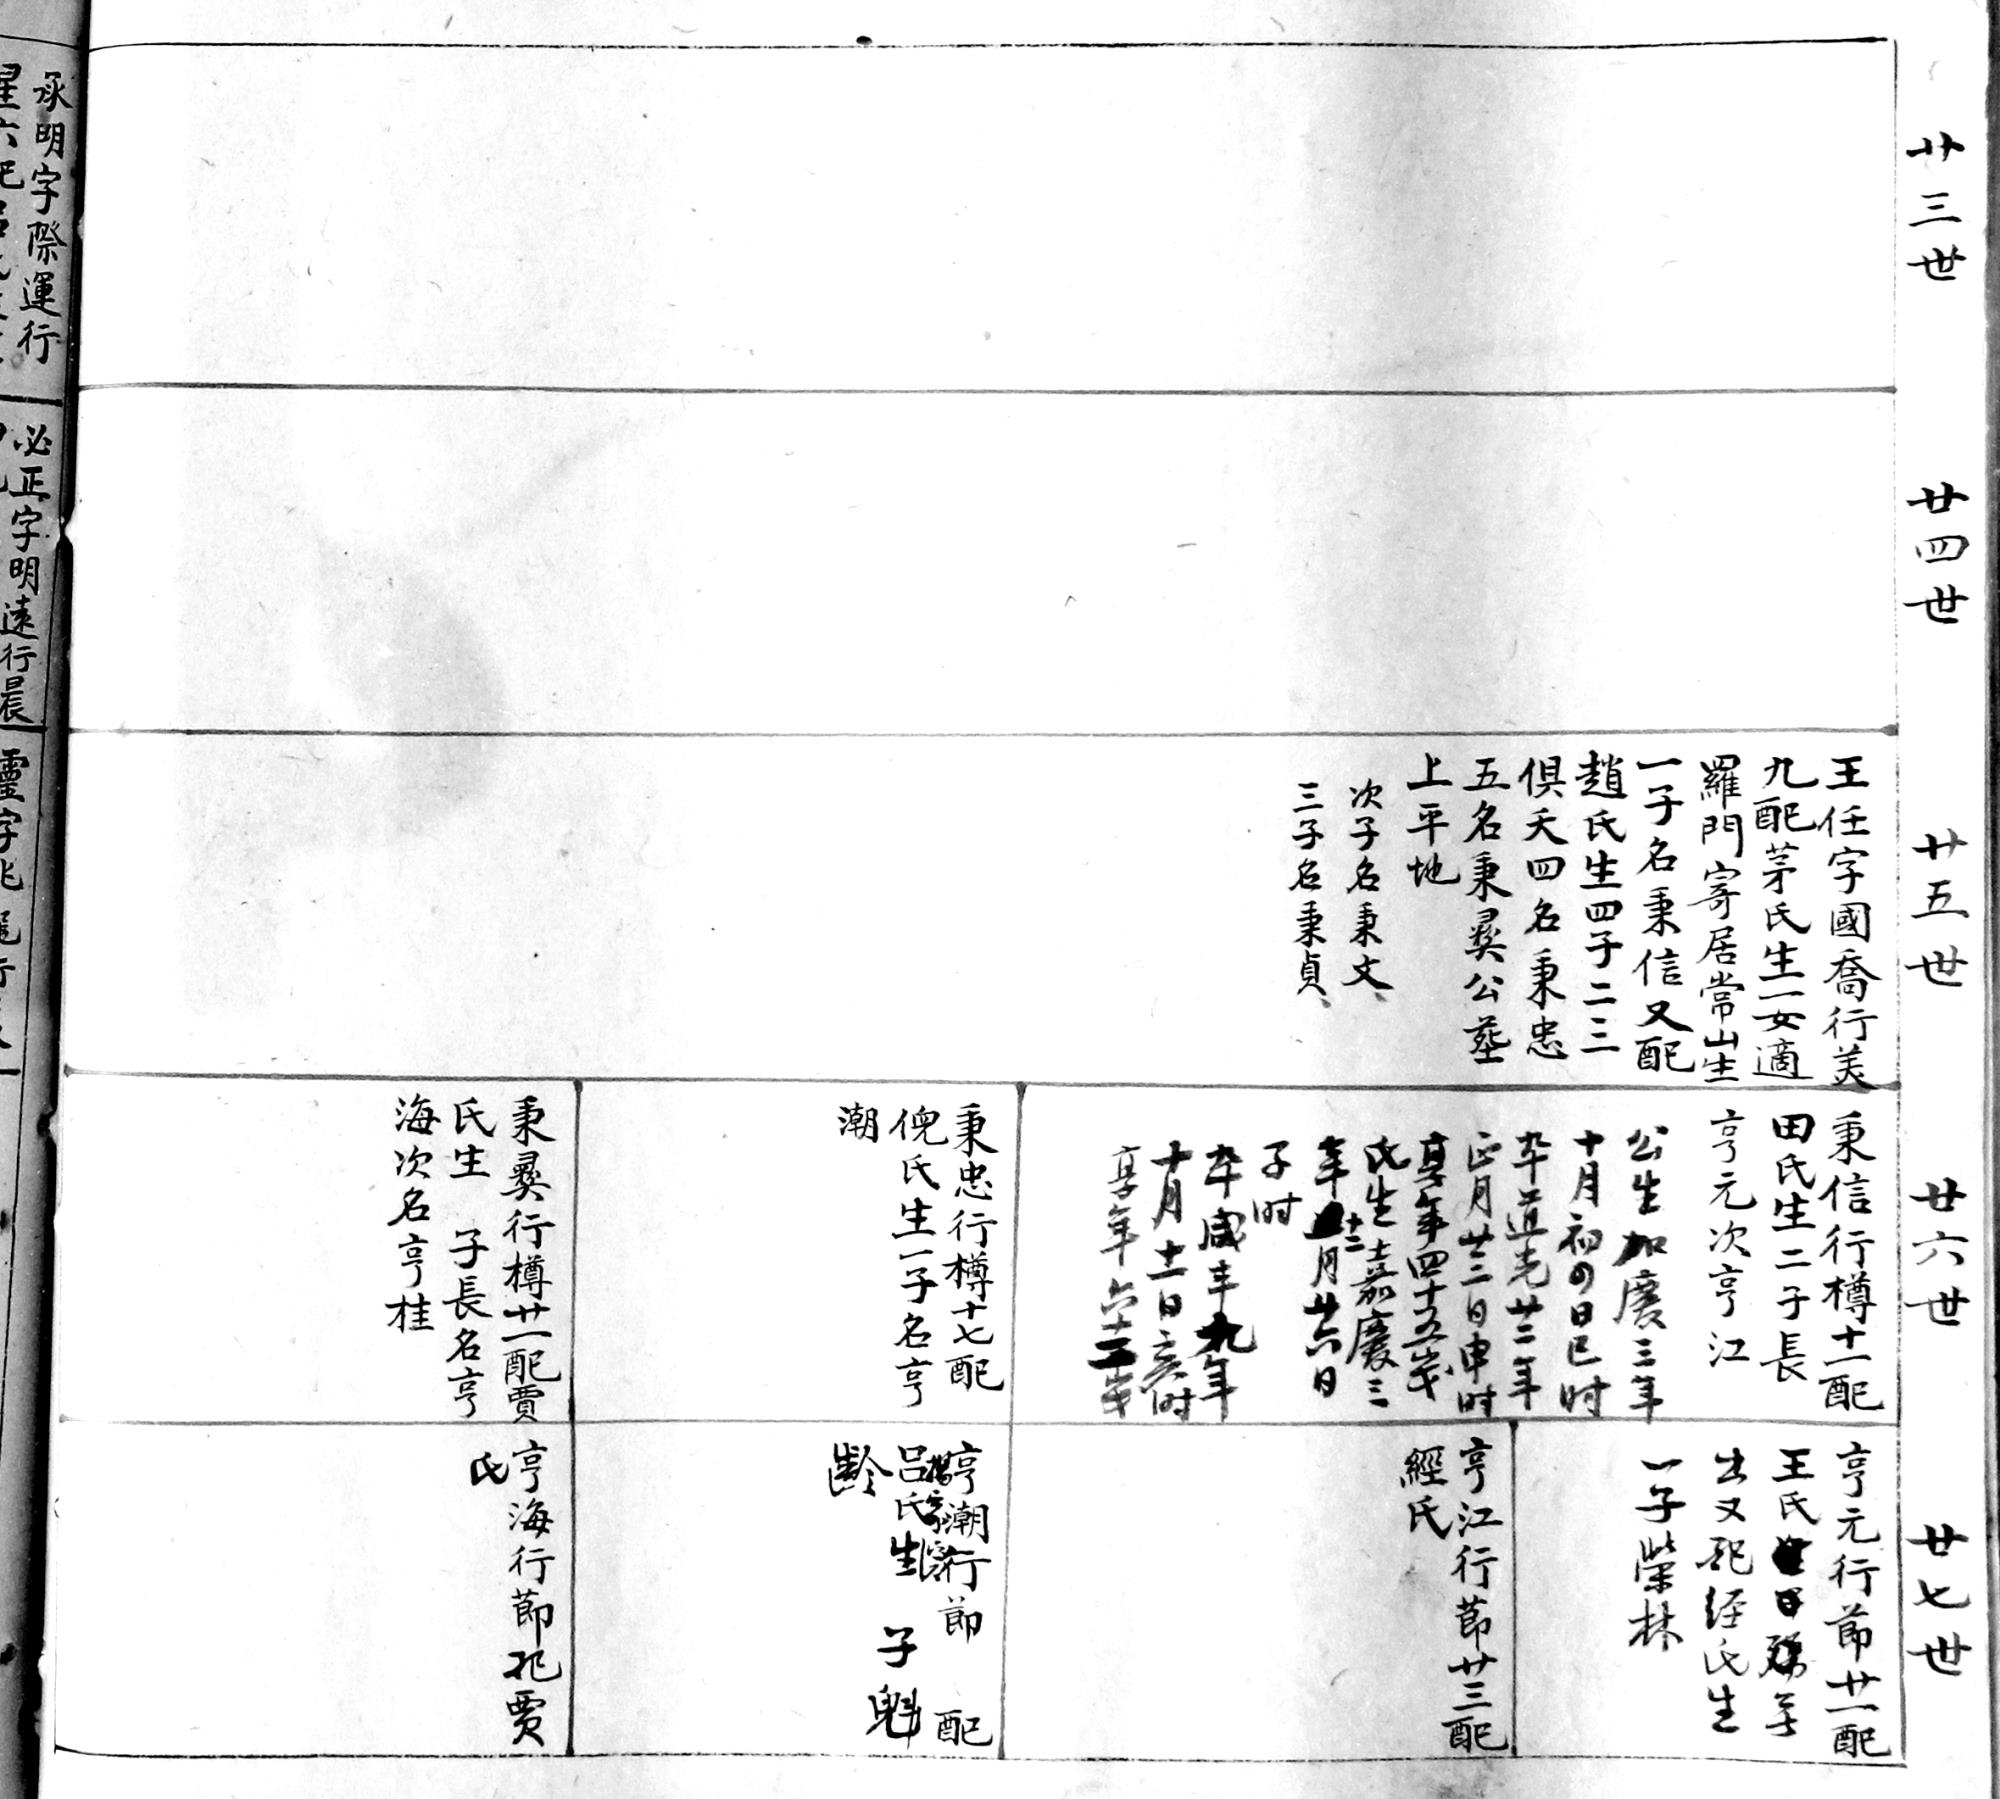 廿三世
廿四世
廿五世
王任字國喬行美
九配茅氏生一女適
羅門寄居常山生
一子名秉信又配
趙氏生四子二三
俱夭四名秉忠
五名秉彛公塟
上平地
次子名秉文、
三子名秉貞、
廿六世
秉信行樽十一配
田氏生二子長
亨元次亨江
公生加慶三年
十月初四日巳时
卒道光廿二年
正月廿三日申时
享年四十五歲
氏生嘉慶三
年十二月廿六日
子时
卒咸丰九年
十月十一日亥时
享年六十二歲
秉忠行樽十七配
倪氏生一子名亨
潮
秉彛行樽廿一配賈
氏生 子長名亨
海次名亨桂
廿七世
亨元行節廿一配
王氏
出又配经氏生
一子榮林
亨江行節廿三配
經氏
亨潮行節 配
吕氏生 子魁
齡
亨海行節配贾
氏
承明字際運行
必正字明遠行晨